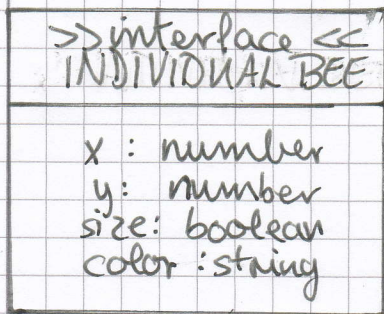 >>interface<<
INDIVIDUAL BEE
x : number
y: number
size: boolean
color :string